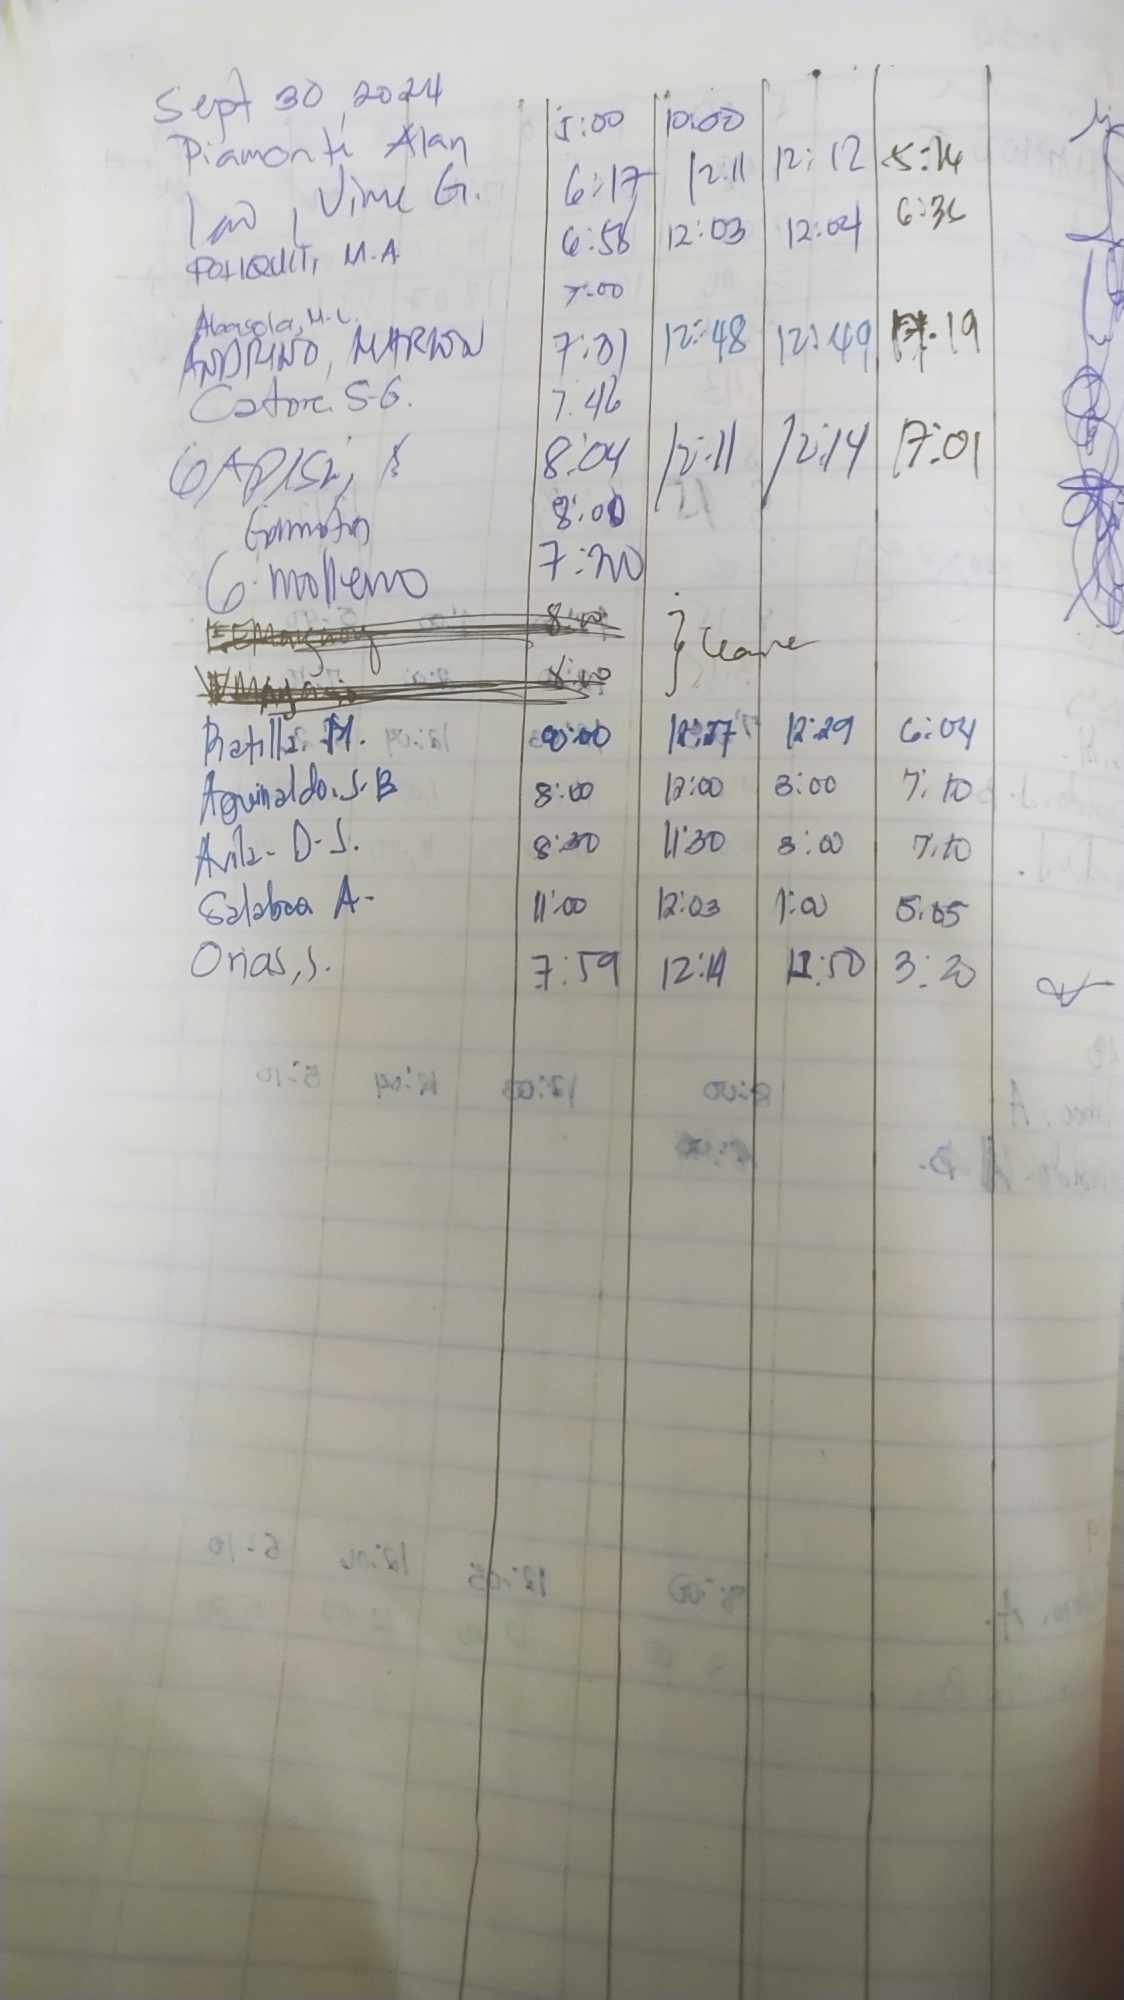 Sept 30, 2024
Piamonti Alan 5:00 10:00
Lao, Vime G. 6:17 12:11 12:12 5:14
POHQUIT, M.A 6:58 12:03 12:04 6:36
Abansola, M.L. 7:00
ANDRINO, MARLON 7:01 12:48 12:49 19
Catore S.G. 7:46
GAPISI, 8:04 12:11 12:14 17:01
8:00
G. Molleno 7:20
8:00 } Leave
8:00
Ratilla M. 8:00 12:27 12:29 6:04
Aguinaldo, J.B 8:00 12:00 3:00 7:10
Avila - D-J. 8:30 11:30 3:00 7:10
Salaboa A- 11:00 12:03 1:00 5:05
Orias, J. 7:59 12:14 12:50 3:20